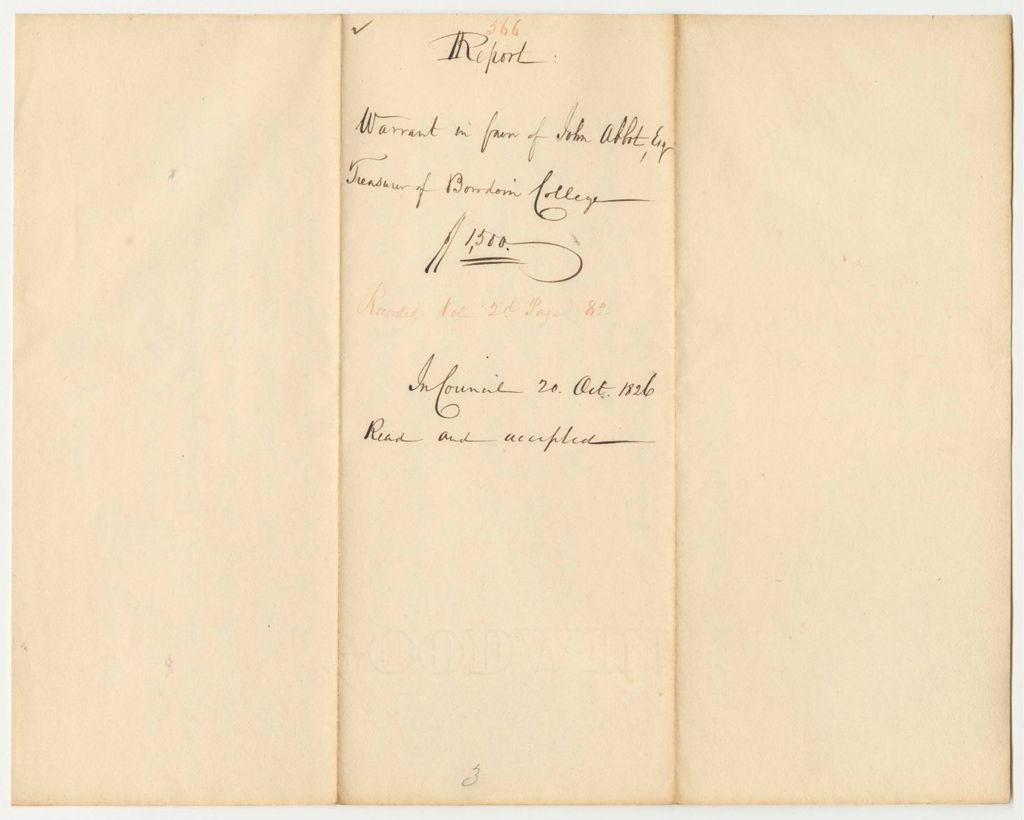 566
Report:
Warrant in favor of John Abbot, Esq
Treasurer of Bowdoin College
$1,500.
Recorded Vol 2d Page 82
In Council 20. Oct. 1826
Read and accepted
3